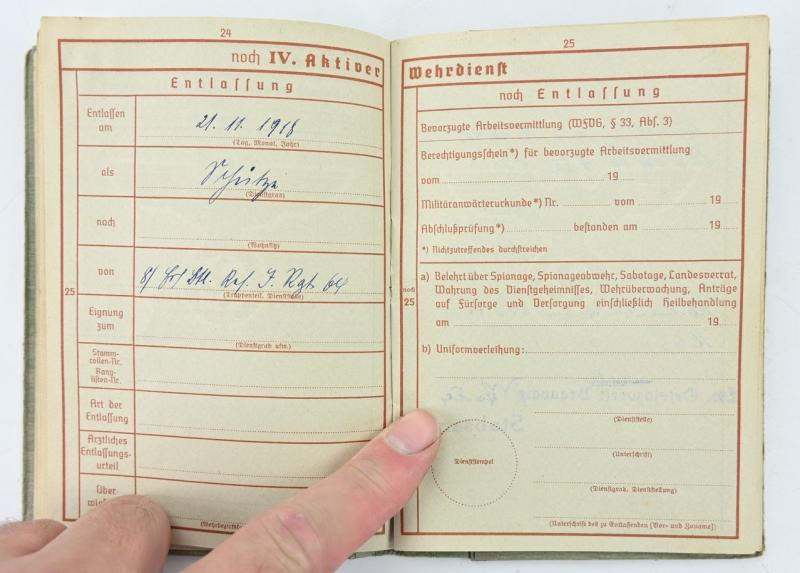 24
noch IV. Aktiver
Entlassung
Entlassen am
21. 11. 1918
(Tag, Monat, Jahr)
als
Schütze
(Dienstgrad)
nach
(Wohnsitz)
25
von
8/ Ers/ Btl. Res. I. Rgt. 64
(Truppenteil, Dienststelle)
Eignung zum
(Dienstgrad usw.)
Stamm-
rollen-Nr.
Rang-
listen-Nr.
Art der
Entlassung
Ärztliches
Entlassungs-
urteil
Über
25
Wehrdienst
noch Entlassung
Bevorzugte Arbeitsvermittlung (WFVG, § 33, Abs. 3)
Berechtigungsschein*) für bevorzugte Arbeitsvermittlung
vom 19
Militäranwärterurkunde*) Nr. vom 19
Abschlußprüfung*) bestanden am 19
*) Nichtzutreffendes durchstreichen
noch
25
a) Belehrt über Spionage, Spionageabwehr, Sabotage, Landesverrat,
Wahrung des Dienstgeheimnisses, Wehrüberwachung, Anträge
auf Fürsorge und Versorgung einschließlich Heilbehandlung
am 19
b) Uniformverleihung:
(Dienststelle)
Dienststempel
(Unterschrift)
(Dienstgrad, Dienststellung)
(Unterschrift des zu Entlassenden [Vor- und Zuname])